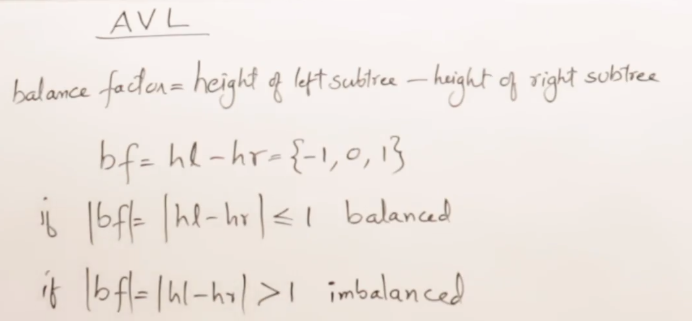 AVL
balance factor = height of left subtree - height of right subtree
bf = hl - hr = {-1, 0, 1}
if |bf| = |hl - hr| ≤ 1 balanced
if |bf| = |hl - hr| > 1 imbalanced